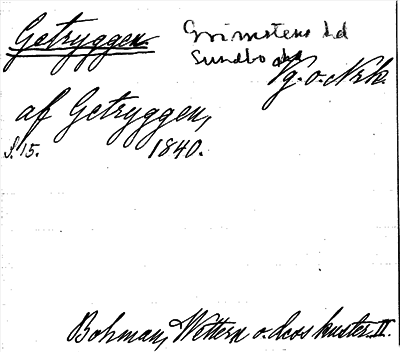 Getryggen
Grimstens hd
Sundbo
Vg. o. Nrk.
af Getryggen,
S. 15. 1840.
Bohman, Wettern o. dess kuster. II.